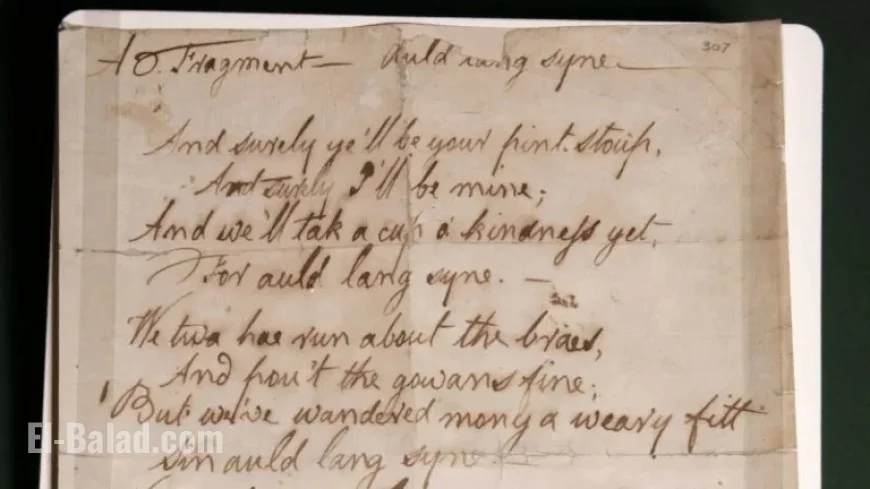 307
10. Fragment — Auld lang syne —
And surely ye'll be your pint-stoup,
And surely I'll be mine;
And we'll tak a cup o' kindness yet,
For auld lang syne. —
We twa hae run about the braes,
And pou't the gowans fine;
But we've wandered mony a weary fitt
Sin auld lang syne
El-Balad.com